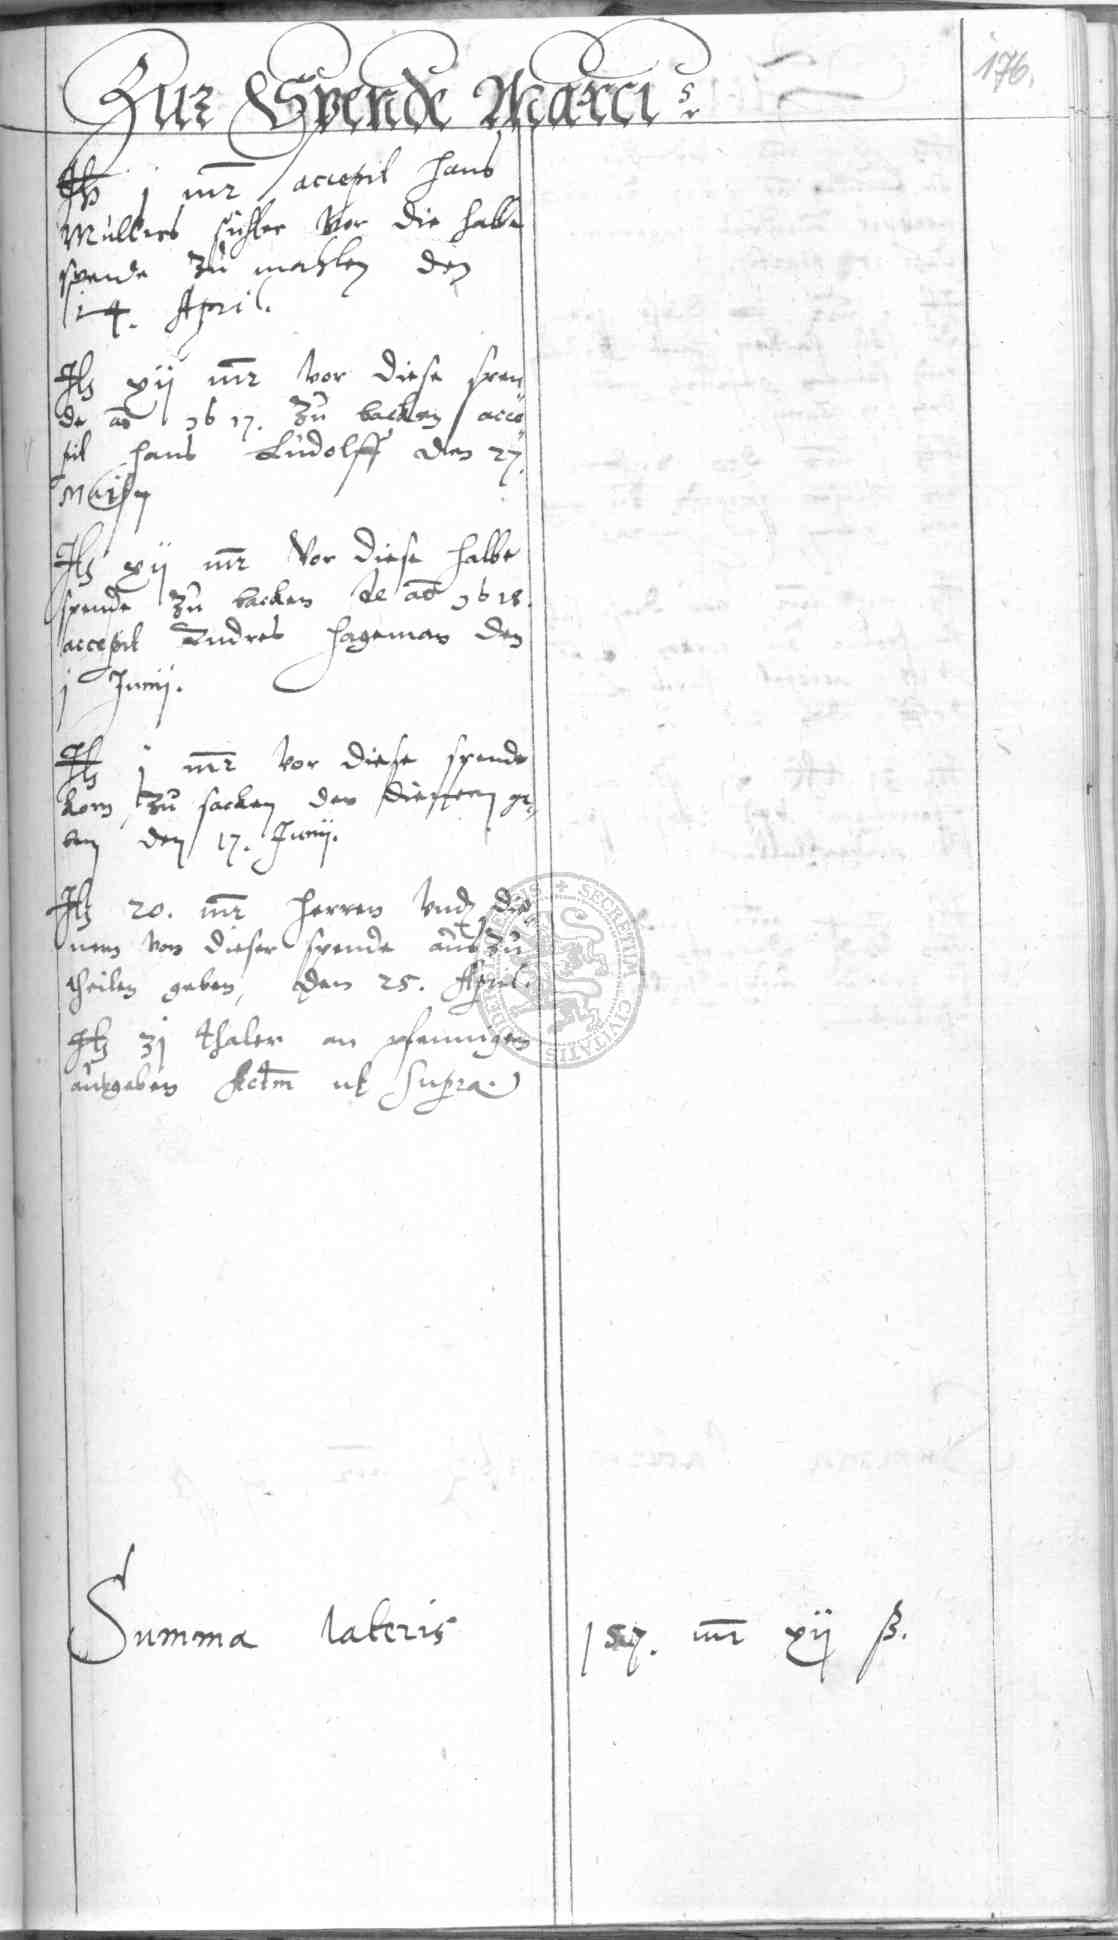 176.
Zur Spende Marci
It j mr accepit Hans
Müllers vor die halbe
spende zu mahlen den
14. April.
It xij mr vor diese spen
de aō 1617. zu backen acce
pit Hans Ludolff den 27.
Martij
It xij mr vor diese halbe
spende zu backen de aō 1618.
accepit Andres Hageman den
j Junij.
It j mr vor diese spende
korn zu sacken den dienern ge
ben den 17. Junij.
It 20. mr Herren vnd die
nern von dieser spende auszu
theilen geben, den 25. April.
It 31 thaler an pfennigen
ausgeben Actm ut supra.
SECRETUM CIVITATIS
Summa lateris 157. mr xij ß.